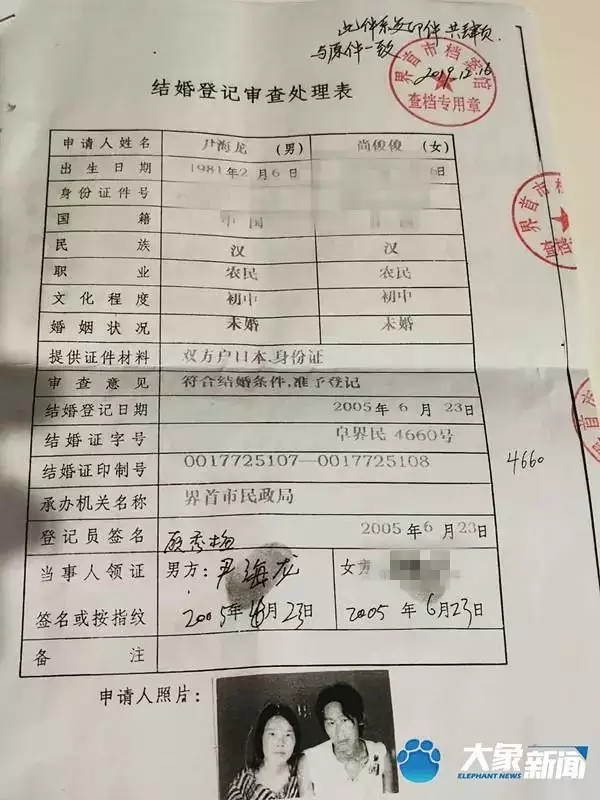 此件系复印件共肆页,
与原件一致
2019.12.16
界首市档案馆
查档专用章
结婚登记审查处理表
申请人姓名 尹海龙 (男) 尚俊俊 (女)
出生日期 1981年2月6日 6日
身份证件号
国籍 中国
民族 汉 汉
职业 农民 农民
文化程度 初中 初中
婚姻状况 未婚 未婚
提供证件材料 双方户口本.身份证
审查意见 符合结婚条件,准予登记
结婚登记日期 2005年6月23日
结婚证字号 阜界民4660号
4660
结婚证印制号 0017725107—0017725108
承办机关名称 界首市民政局
登记员签名 顾秀梅 2005年6月23日
当事人领证 男方:尹海龙 女方
签名或按指纹 2005年6月23日 2005年6月23日
备注
申请人照片:
大象新闻
ELEPHANT NEWS